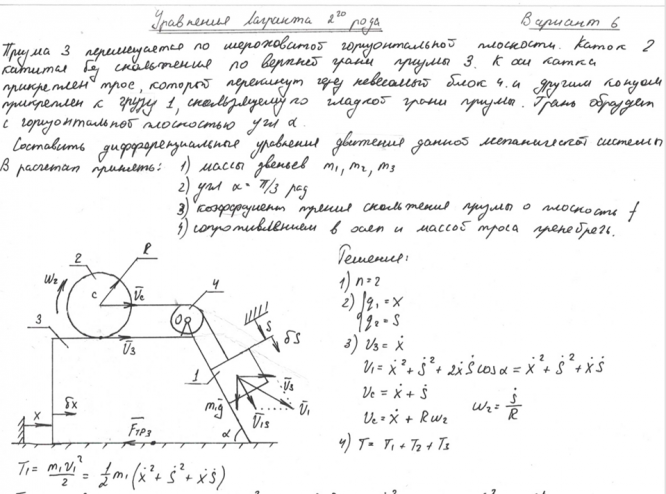 Уравнения Лагранжа 2го рода
Вариант 6
Призма 3 перемещается по шероховатой горизонтальной плоскости. Каток 2
катится без скольжения по верхней грани призмы 3. К оси катка
прикреплен трос, который перекинут через невесомый блок 4. и другим концом
прикреплен к грузу 1, скользящему по гладкой грани призмы. Грань образует
с горизонтальной плоскостью угол α.
Составить дифференциальные уравнения движения данной механической системы
В расчетах принять: 1) массы звеньев m₁, m₂, m₃
2) угол α = π/3 рад
3) коэффициент трения скольжения призмы о плоскость f
4) сопротивлением в осях и массой троса пренебречь.
Решение:
1) n=2
2) { q₁ = x
q₂ = S
3) V₃ = ẋ
V₁ = ẋ² + Ṡ² + 2ẋṠcosα = ẋ² + Ṡ² + ẋṠ
Vc = ẋ + Ṡ
Vc = ẋ + Rω₂
ω₂ = Ṡ/R
4) T = T₁ + T₂ + T₃
2
R
ω₂
C
V̄c
4
3
V̄₃
O
S
δS
1
V̄₃
m₁ḡ
V̄₁₃
V̄₁
x
δx
F̄тр3
α
T₁ = m₁V₁²/2 = 1/2 m₁(ẋ² + Ṡ² + ẋṠ)